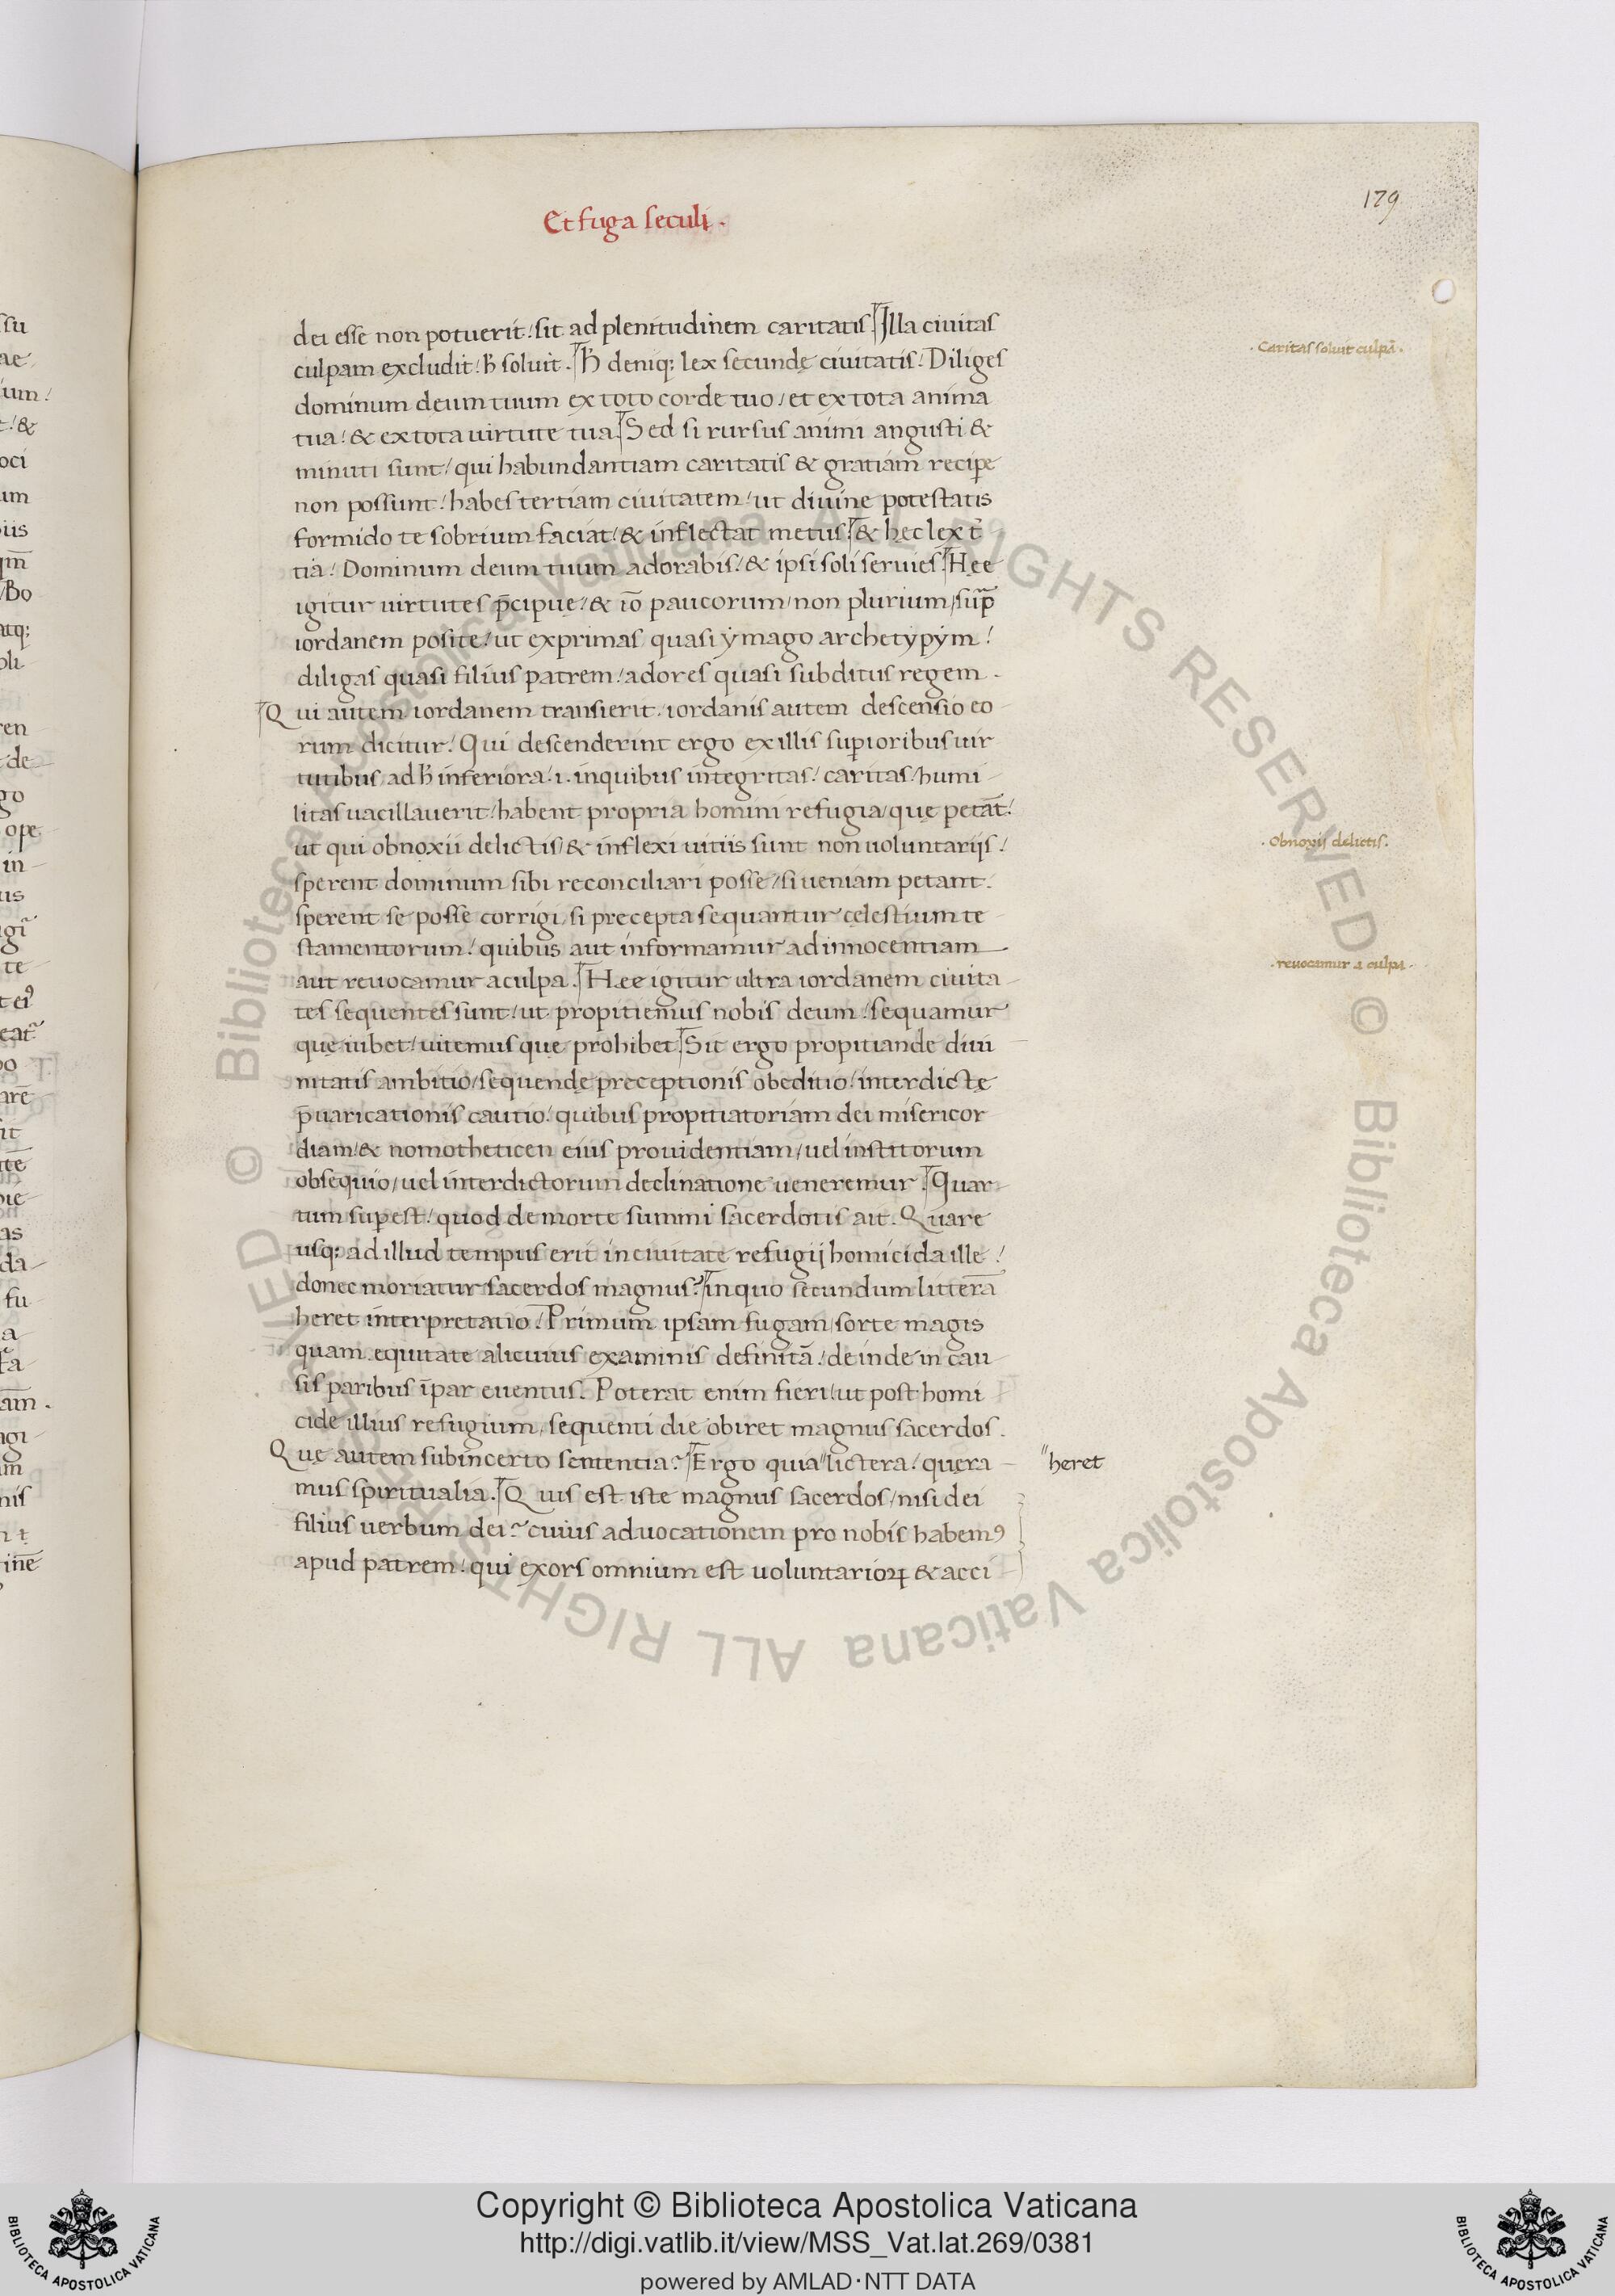 179
Et fuga seculi .
dei esse non potuerit / sit ad plenitudinem caritatis . Illa ciuitas
culpam excludit / h̄ soluit . H̄ deniq; lex secundę ciuitatis / Diliges
dominum deum tuum ex toto corde tuo / et ex tota anima
tua / & ex tota uirtute tua . Sed si rursus animi angusti &
minuti sunt / qui habundantiam caritatis & gratiam recipe
non possunt / habes tertiam ciuitatem / ut diuine potestatis
formido te sobrium faciat / & inflectat metus / & hęc lex t̄
tia / Dominum deum tuum adorabis / & ipsi soli seruies . Hee
igitur uirtutes p̄cipue / & iō paucorum / non plurium / sup̄
iordanem posite / ut exprimas quasi ẏmago archetẏpẏm /
diligas quasi filius patrem / adores quasi subditus regem .
Qui autem iordanem transierit / iordanis autem descensio eo
rum dicitur / Qui descenderint ergo ex illis superioribus uir
tutibus ad h̄ inferiora .i. in quibus integritas / caritas / humi
litas uacillauerit / habent propria homini refugia / quę petāt /
ut qui obnoxii delictis / & inflexi uitiis sunt non uoluntarijs /
sperent dominum sibi reconciliari posse / si ueniam petant .
sperent se posse corrigi / si precepta sequantur cęlestium te
stamentorum / quibus aut informamur ad innocentiam
aut reuocamur a culpa . Hęe igitur ultra iordanem ciuita
tes sequentes sunt / ut propitiemus nobis deum / sequamur
quę iubet / uitemus que prohibet . Sit ergo propitiande diui
nitatis ambitio / sequendę preceptionis obeditio / interdictę
p̄uaricationis cautio / quibus propitiatoriam dei misericor
diam / & nomotheticen eius prouidentiam / uel institorum
obsequio / uel interdictorum declinatione ueneremur . Quar
tum supest / quod de morte summi sacerdotis ait . Quare
usq; ad illud tempus erit in ciuitate refugij homicida ille /
donec moriatur sacerdos magnus / in quo secundum litterā
heret interpretatio . Primum ipsam fugam / sorte magis
quam equitate alicuius examinis definitā / deinde in cau
sis paribus īpar euentus . Poterat enim fieri / ut post homi
cide illius refugium / sequenti die obiret magnus sacerdos .
Quę autem sub incerto sententia ? Ergo quia " lictera / quęra
mus spiritualia . Quis est iste magnus sacerdos / nisi dei
filius uerbum dei ? cuius aduocationem pro nobis habemꝰ
apud patrem / qui exors omnium est uoluntarioꝝ & acci
. Caritas soluit culpā .
. Obnoxijs delictis .
. reuocamur a culpa .
" heret
Copyright © Biblioteca Apostolica Vaticana
http://digi.vatlib.it/view/MSS_Vat.lat.269/0381
powered by AMLAD·NTT DATA
BIBLIOTECA APOSTOLICA VATICANA
BIBLIOTECA APOSTOLICA VATICANA